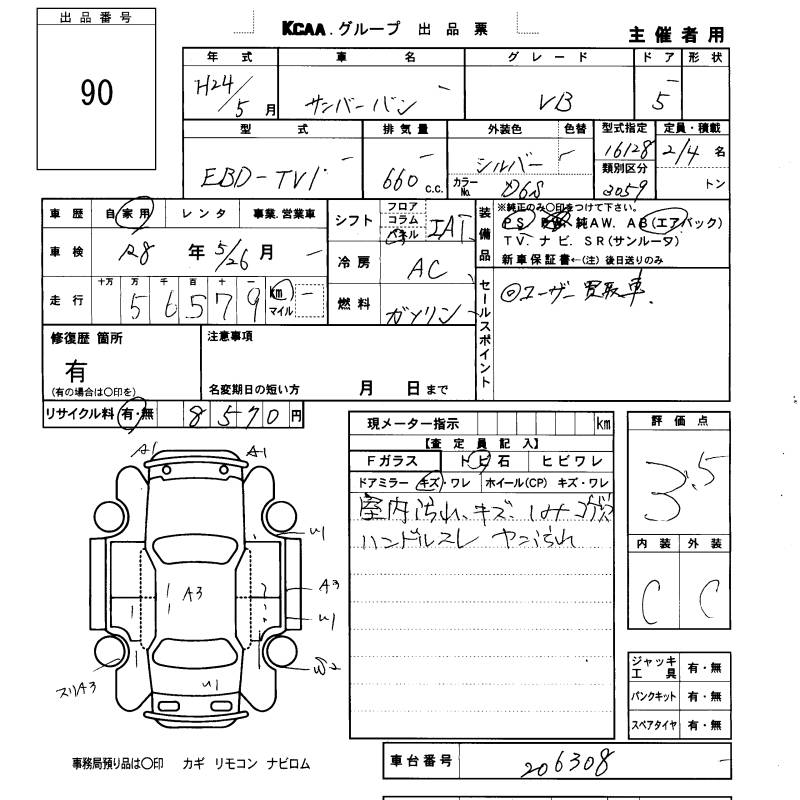 出品番号
90
KCAA.グループ 出品票
主催者用
年式 車名 グレード ドア 形状
H24/5月 サンバーバン VB 5
型式 排気量 外装色 色替 型式指定 定員・積載
EBD-TV1 660 c.c. シルバー 16128 2/4 名
カラーNo. D6S 類別区分 3059 トン
車歴 自家用 レンタ 事業.営業車
車検 R8 年 5/26 月
走行 十万 万 千 百 十 一
5 6 5 7 9 km マイル
シフト フロア コラム パネル IAT
冷房 AC
燃料 ガソリン
装備品
※純正のみ〇印をつけて下さい。
PS. 純AW. AB(エアバック)
TV. ナビ. SR(サンルーフ)
新車保証書←(注) 後日送りのみ
セールスポイント
◎ユーザー買取車.
修復歴 箇所
有
(有の場合は〇印を)
注意事項
名変期日の短い方 月 日まで
リサイクル料 有・無 8570円
現メーター指示 km
【査定員記入】
Fガラス トビ石 ヒビワレ
ドアミラー キズ・ワレ ホイール(CP) キズ・ワレ
室内汚れ、キズ、シミ コゲ穴
ハンドルスレ ヤニ汚れ
評価点
3.5
内装 外装
C C
A1 A1
U1
A3
A3
U1
W2
スリA3
U1
ジャッキ工具 有・無
パンクキット 有・無
スペアタイヤ 有・無
事務局預り品は〇印 カギ リモコン ナビロム
車台番号 206308